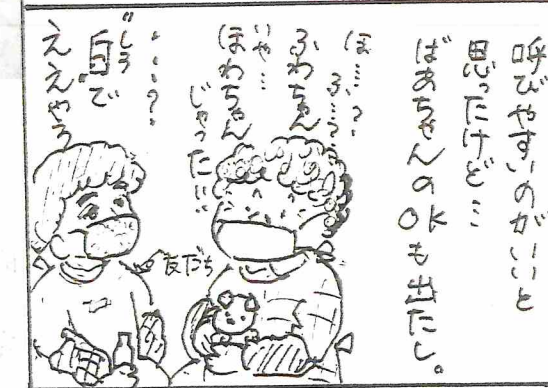 呼びやすいのがいいと
思ったけど…
ばあちゃんのOKも出たし。
ほ…？
ふ…？
ふわちゃん
いや…
ほわちゃん
じゃった…
…？
"しろ"
白で
ええやろ
友だち